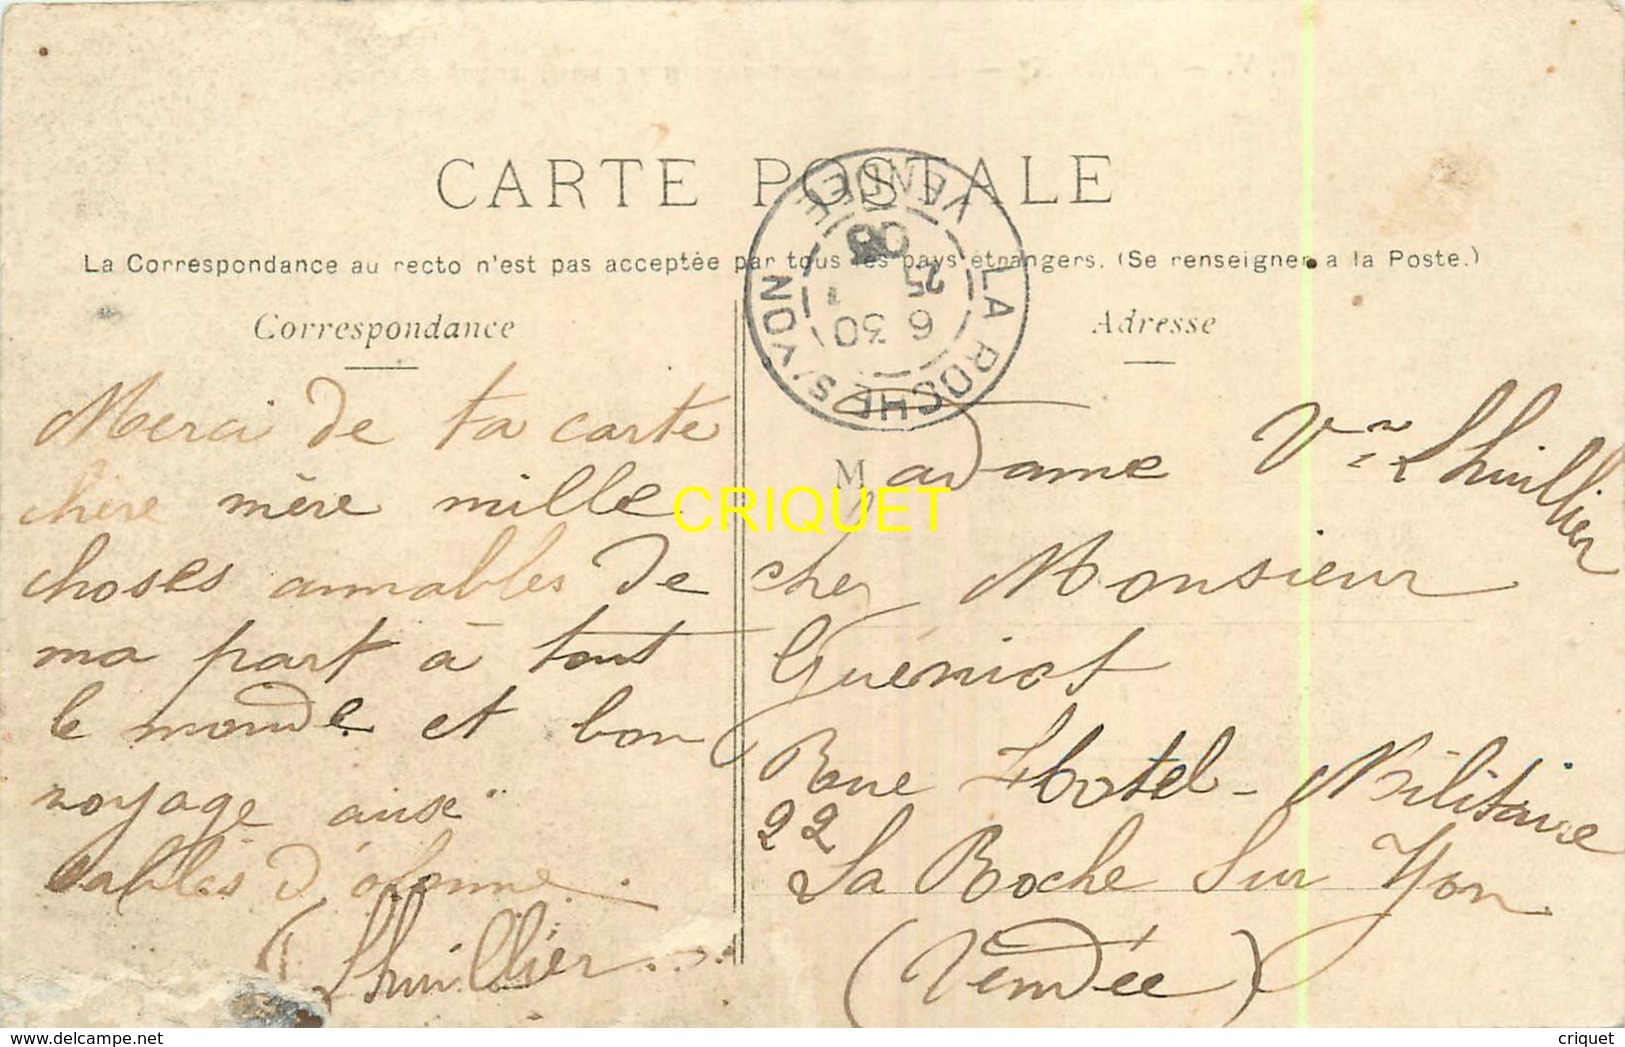 CARTE POSTALE
La Correspondance au recto n'est pas acceptée par tous les pays étrangers. (Se renseigner a la Poste.)
Correspondance
Merci de ta carte
chère mère mille
choses aimables de
ma part à tout
le monde et bon
voyage aux
sables d'olonne.
Lhuillier
LA ROCHE S/YON
VENDÉE
6 30
25
08
Adresse
Madame Vve Lhuillier
chez Monsieur
Guéniot
Rue Hotel-Militaire
22
La Roche Sur Yon
(Vendée)
CRIQUET
delcampe.net
criquet